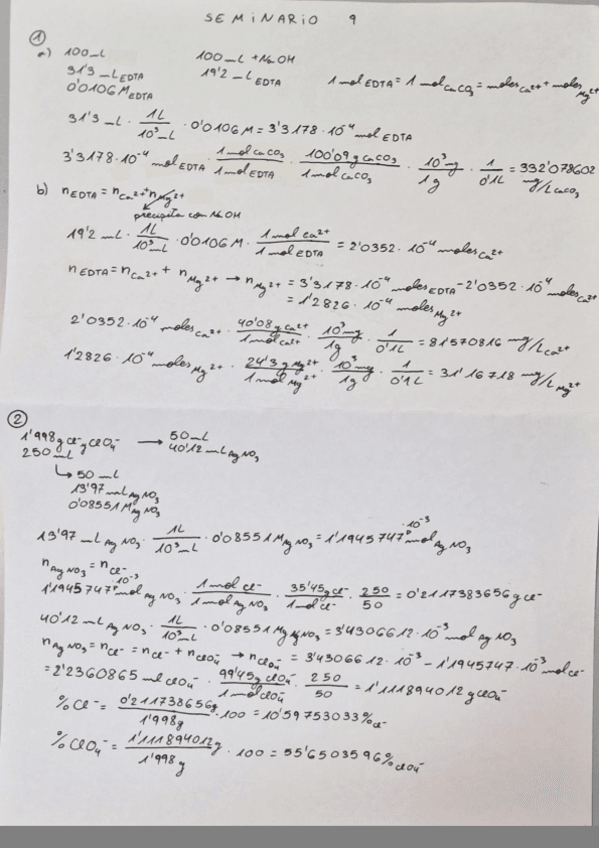 SEMINARIO 9
①
a) 100 mL 100 mL + NaOH
31'3 mL EDTA 19'2 mL EDTA 1 mol EDTA = 1 mol CaCO₃ = moles Ca²⁺ + moles Mg²⁺
0'0106 M EDTA
31'3 mL · 1L/10³ mL · 0'0106 M = 3'3178 · 10⁻⁴ mol EDTA
3'3178 · 10⁻⁴ mol EDTA · 1 mol CaCO₃/1 mol EDTA · 100'09 g CaCO₃/1 mol CaCO₃ · 10³ mg/1 g · 1/0'1L = 332'078602 mg/L CaCO₃
b) n EDTA = n Ca²⁺ + n Mg²⁺
precipita con NaOH
19'2 mL · 1L/10³ mL · 0'0106 M · 1 mol Ca²⁺/1 mol EDTA = 2'0352 · 10⁻⁴ moles Ca²⁺
n EDTA = n Ca²⁺ + n Mg²⁺ → n Mg²⁺ = 3'3178 · 10⁻⁴ moles EDTA - 2'0352 · 10⁻⁴ moles Ca²⁺
= 1'2826 · 10⁻⁴ moles Mg²⁺
2'0352 · 10⁻⁴ moles Ca²⁺ · 40'08 g Ca²⁺/1 mol Ca²⁺ · 10³ mg/1g · 1/0'1L = 81'570816 mg/L Ca²⁺
1'2826 · 10⁻⁴ moles Mg²⁺ · 24'3 g Mg²⁺/1 mol Mg²⁺ · 10³ mg/1g · 1/0'1L = 31'16718 mg/L Mg²⁺
②
1'998 g Cl⁻ y ClO₄⁻ → 50 mL
250 mL 40'12 mL AgNO₃
↳ 50 mL
13'97 mL AgNO₃
0'08551 M AgNO₃
13'97 mL AgNO₃ · 1L/10³ mL · 0'08551 M AgNO₃ = 1'1945747 · 10⁻³ mol AgNO₃
n AgNO₃ = n Cl⁻
1'1945747 · 10⁻³ mol AgNO₃ · 1 mol Cl⁻/1 mol AgNO₃ · 35'45 g Cl⁻/1 mol Cl⁻ · 250/50 = 0'2117383656 g Cl⁻
40'12 mL AgNO₃ · 1L/10³ mL · 0'08551 M AgNO₃ = 3'4306612 · 10⁻³ mol AgNO₃
n AgNO₃ = n Cl⁻ = n Cl⁻ + n ClO₄⁻ → n ClO₄⁻ = 3'4306612 · 10⁻³ - 1'1945747 · 10⁻³ mol Cl⁻
= 2'2360865 mol ClO₄⁻ · 99'45 g ClO₄⁻/1 mol ClO₄⁻ · 250/50 = 1'111894012 g ClO₄⁻
% Cl⁻ = 0'211738656g/1'998g · 100 = 10'59753033 % Cl⁻
% ClO₄⁻ = 1'111894012g/1'998 g · 100 = 55'6503596 % ClO₄⁻